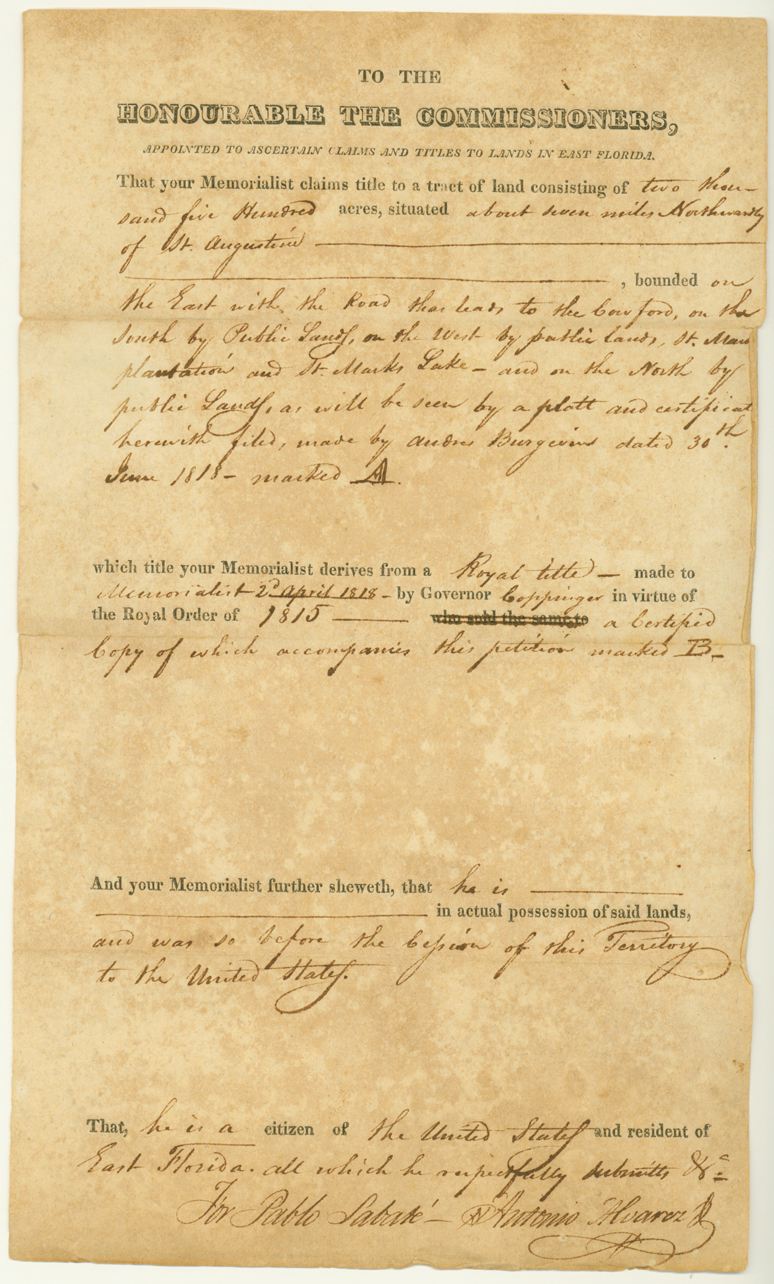 TO THE
HONOURABLE THE COMMISSIONERS,
APPOINTED TO ASCERTAIN CLAIMS AND TITLES TO LANDS IN EAST FLORIDA.
That your Memorialist claims title to a tract of land consisting of two thou-
sand five Hundred acres, situated about seven miles Northwardly
of St. Augustine
, bounded on
the East with the Road that leads to the Cowford, on the
South by Public Lands, on the West by public lands, St. Marks
plantation and St. Marks Lake – and on the North by
public Lands, as will be seen by a platt and certificat
herewith filed, made by Andres Burgevin dated 30th.
June 1818 – marked A.
which title your Memorialist derives from a Royal title – made to
Memorialist 2d April 1818 – by Governor Coppinger in virtue of
the Royal Order of 1815 who sold the same to a Certified
Copy of which accompanies this petition marked B –
And your Memorialist further sheweth, that he is
in actual possession of said lands,
and was so before the Cession of this Territory
to the United States.
That, he is a citizen of the United States and resident of
East Florida. all which he respectfully submitts &c
For Pablo Sabaté – Antonio Alvarez